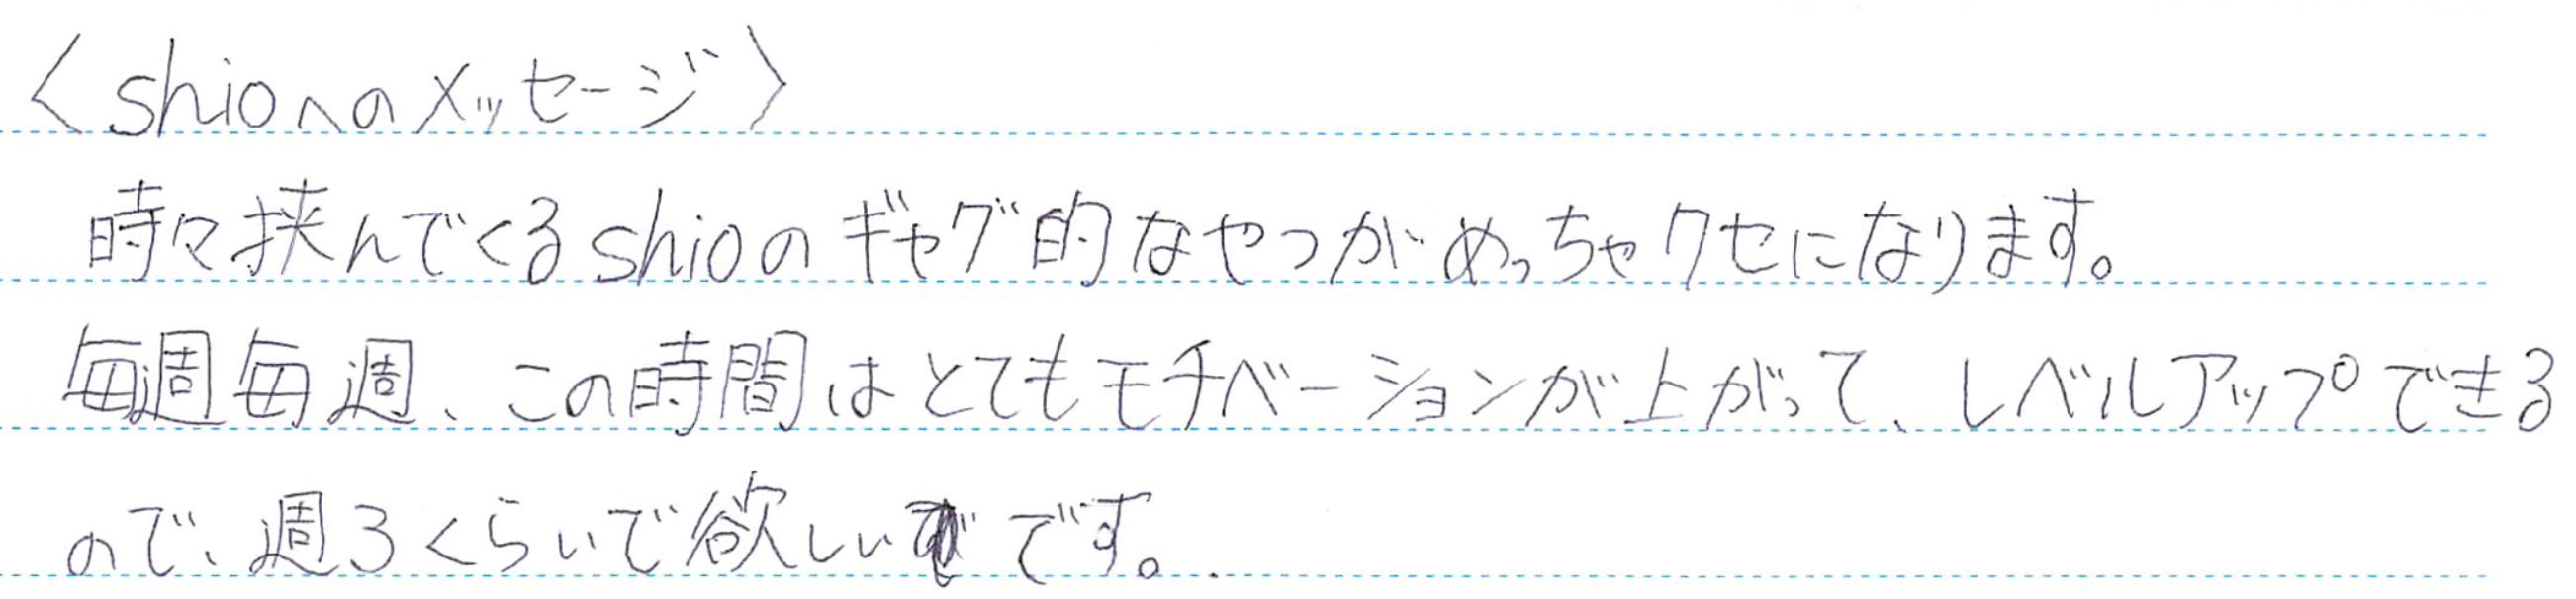 〈shioへのメッセージ〉
時々挟んでくるshioのギャグ的なやつがめっちゃクセになります。
毎週毎週、この時間はとてもモチベーションが上がって、レベルアップできる
ので、週3くらいで欲しいです。